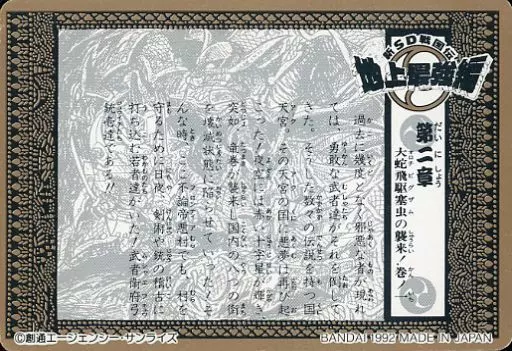 新SD戦国伝
地上最強編
第二章
だいにしょう
大蛇飛駆塞虫の襲来!巻ノ一
過去に幾度となく邪悪な者が現れ
ては、勇敢な武者達がそれを倒して
きた。そういった数々の伝説を持つ国
天宮。その天宮の国に悪夢は再び起
こった!夜空には赤い十字星が輝き、
突如、竜巻が襲来し国内の八つの街
を壊滅状態に陥とせていったぅ!そ
んな時、ここ不論帝悪村でも、村を
守るために日夜、剣術や銃の稽古に
打ち込む若者達がいた!武者衛府弓
銃壱達である!
©創通エージェンシー・サンライズ
BANDAI 1992 MADE IN JAPAN